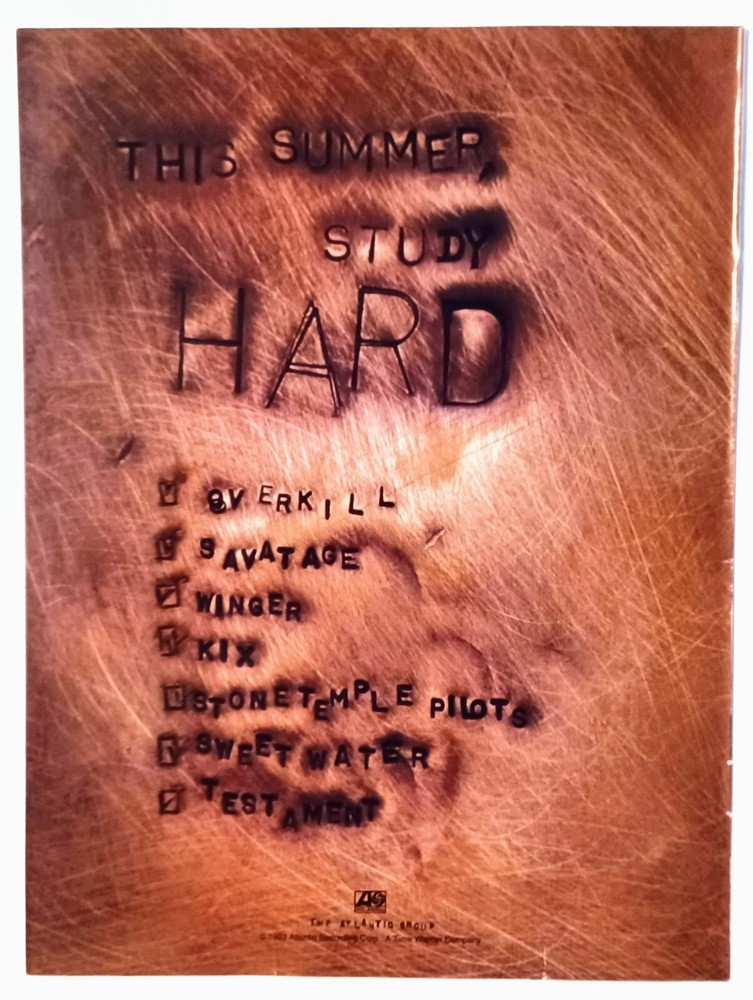 THIS SUMMER,
STUDY
HARD
OVERKILL
SAVATAGE
WINGER
KIX
STONE TEMPLE PILOTS
SWEET WATER
TESTAMENT
THE ATLANTIC GROUP
©1993 Atlantic Recording Corp. A Time Warner Company